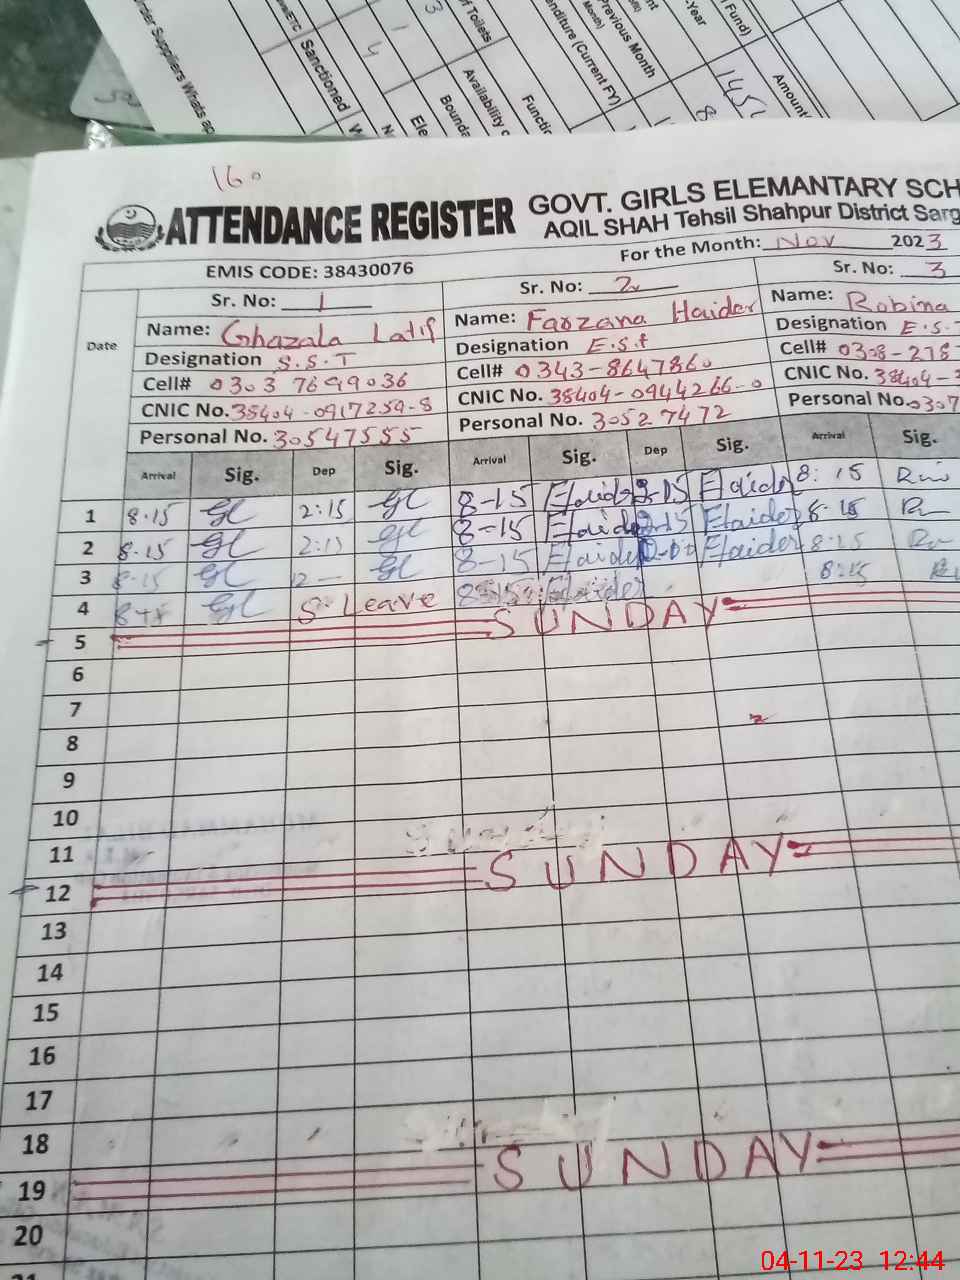 nder Suppliers Whats ap
Sanctioned
of Toilets
Availability o
Bounda
Ele
Functio
nditure (Current FY)
Previous Month
Month)
-Year
Fund)
Amount
1
4
3
8
145
160
ATTENDANCE REGISTER GOVT. GIRLS ELEMANTARY SCH
AQIL SHAH Tehsil Shahpur District Sarg
For the Month: Nov 2023
EMIS CODE: 38430076
Date
Sr. No: 1 Sr. No: 2 Sr. No: 3
Name: Ghazala Latif Name: Farzana Haider Name: Robina
Designation S.S.T Designation E.S.t Designation E.S.T
Cell# 0303 7699036 Cell# 0343-8647860 Cell# 0308-278
CNIC No. 38404-0917259-8 CNIC No. 38404-0944266-0 CNIC No. 38404-
Personal No. 30547555 Personal No. 30527472 Personal No. 307
Arrival Sig. Dep Sig. Arrival Sig. Dep Sig. Arrival Sig.
1 8.15 GL 2:15 GL 8-15 Haider 2-15 Haider 8:15
2 8.15 GL 2:15 GL 8-15 Haider 2-15 Haider 8-15
3 8-15 GL 12 - GL 8-15 Haider Haider 8-15
4 GL S. Leave 8:15 Haider 8:15
5 SUNDAY
6
7
8
9
10
11
12 SUNDAY
13
14
15
16
17
18
19 SUNDAY
20
04-11-23 12:44